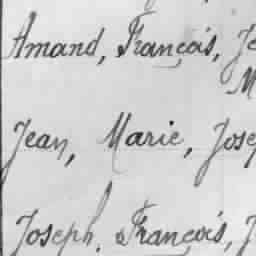 Amand, François, Je
M
Jean, Marie, Josep
Joseph, François, J